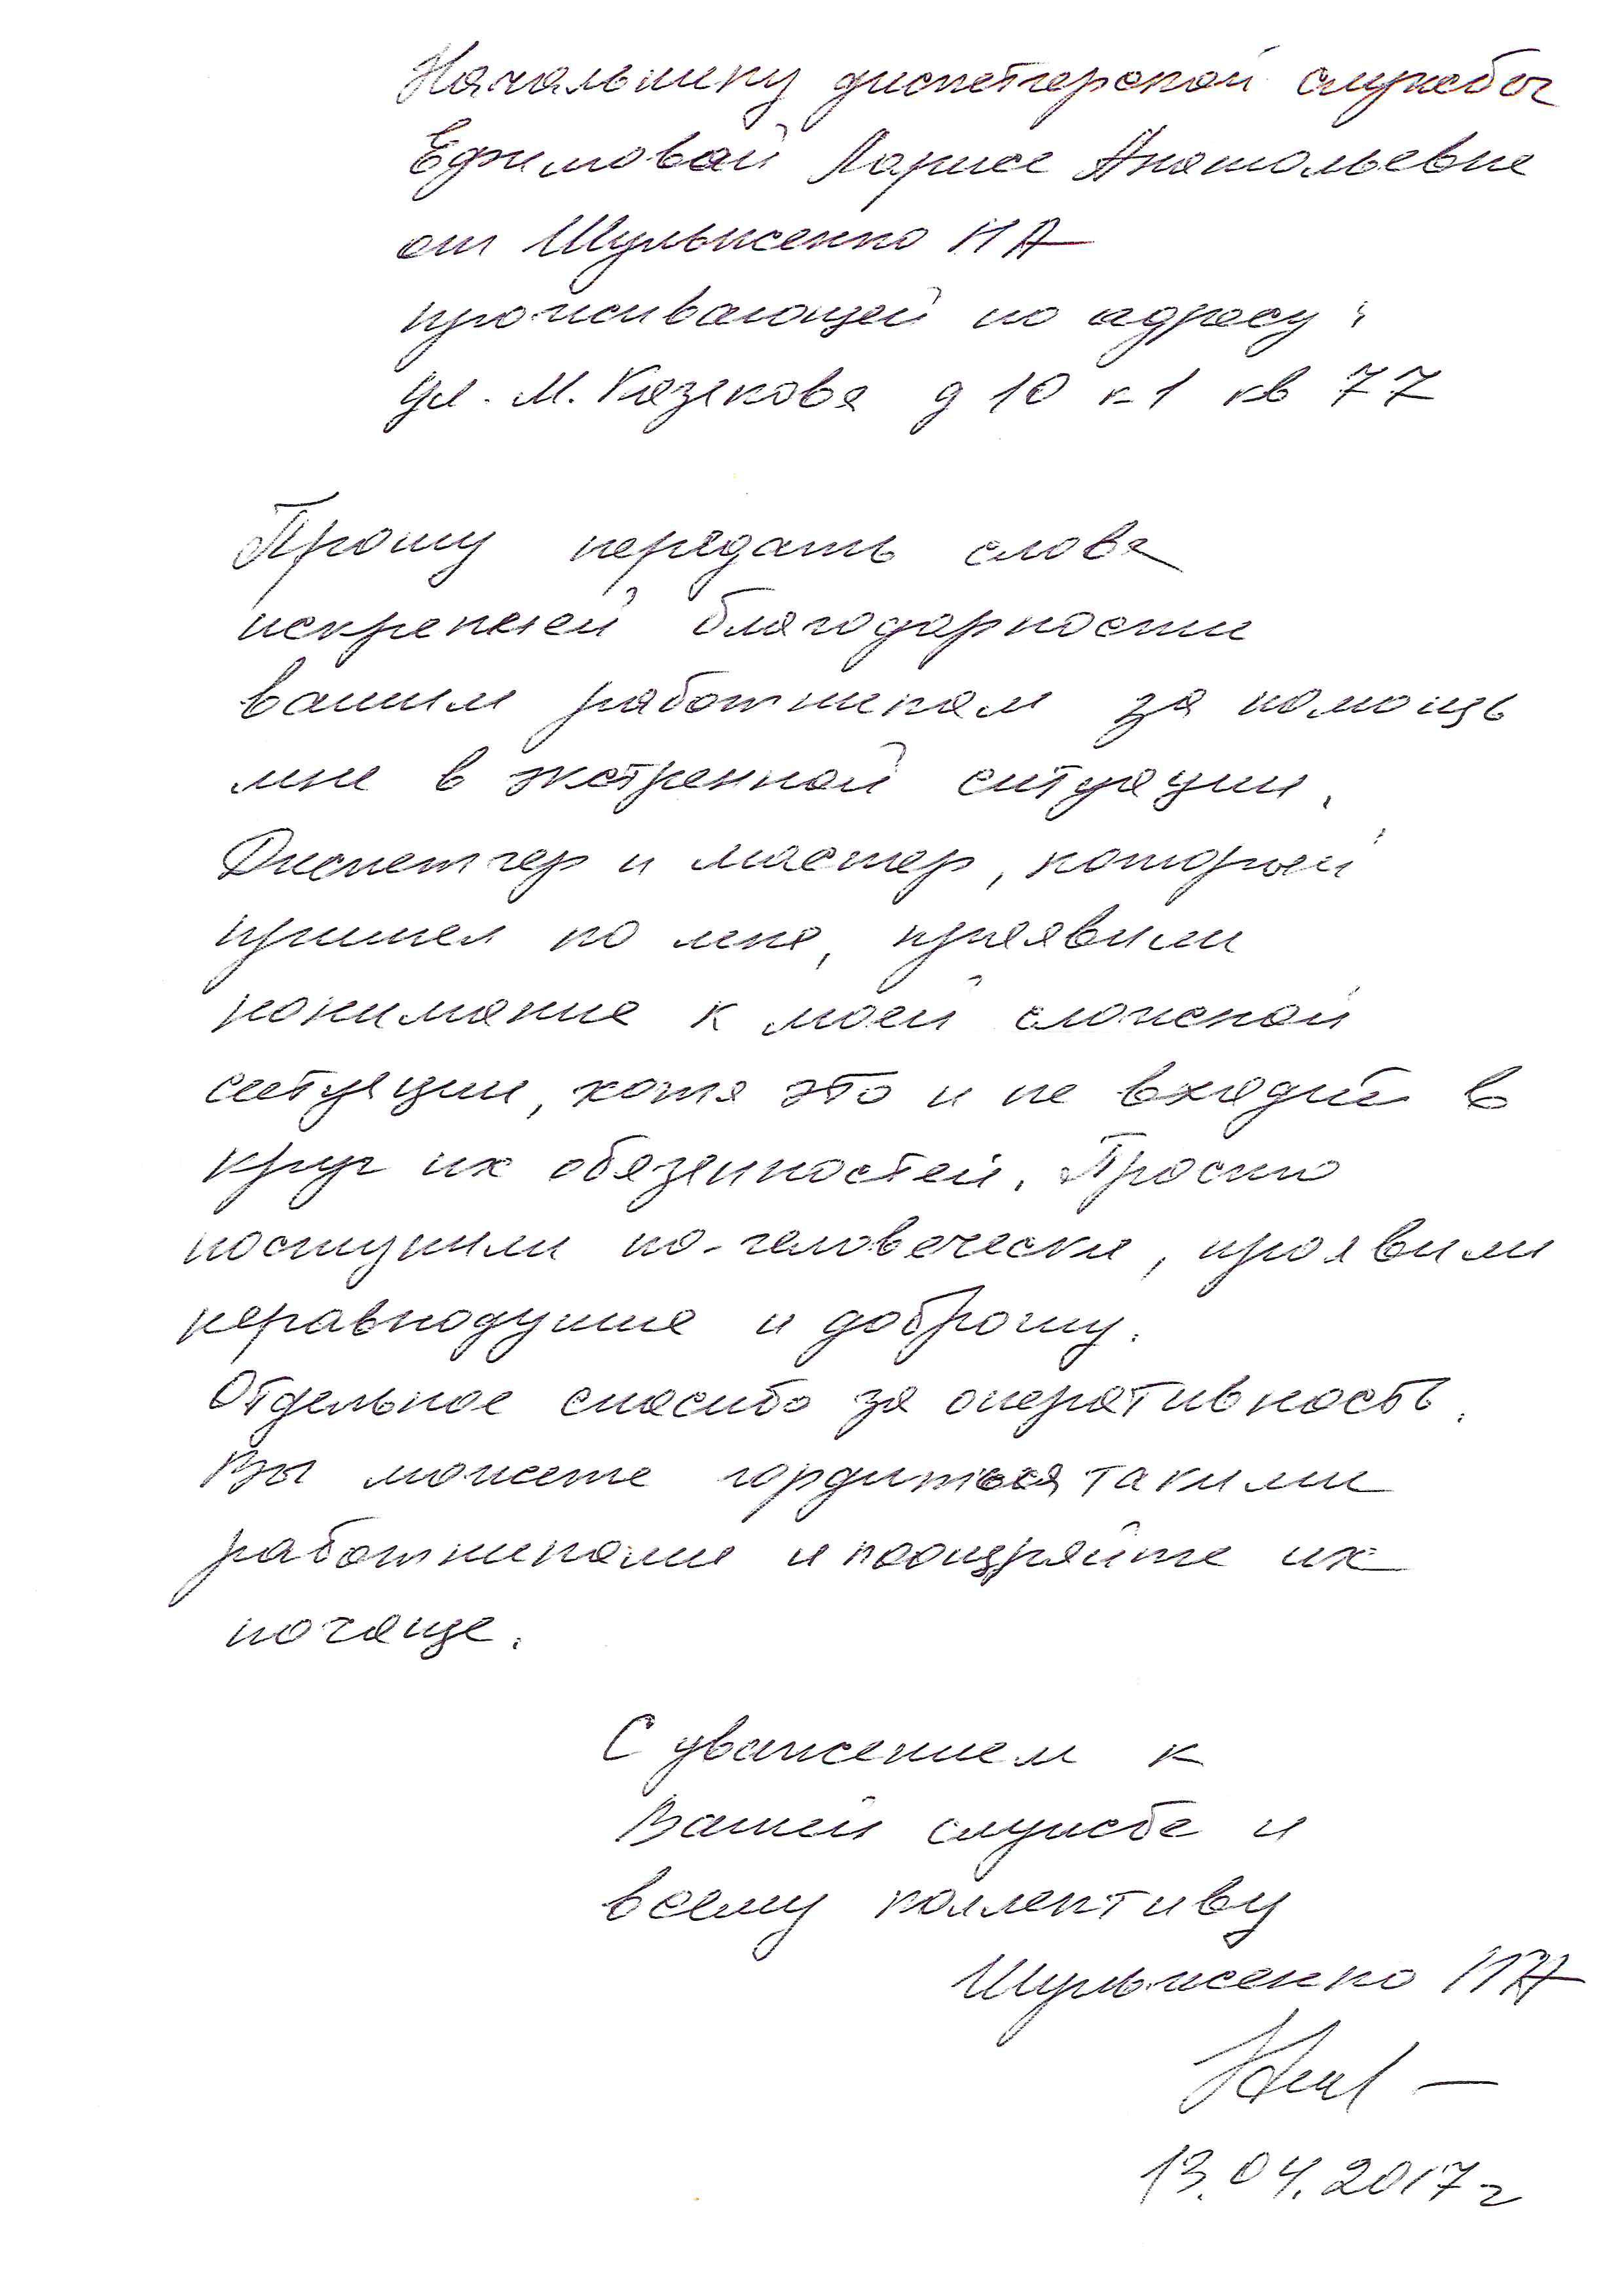 Начальнику диспетчерской службы
Ефимовой Ларисе Анатольевне
от Шульженко Н А
проживающей по адресу:
ул. М. Казакова д 10 к 1 кв 77
Прошу передать слова
искренней благодарности
вашим работникам за помощь
мне в экстренной ситуации.
Диспетчер и мастер, который
пришел ко мне, проявили
понимание к моей сложной
ситуации, хотя это и не входит в
круг их обязанностей. Просто
поступили по-человечески, проявили
неравнодушие и доброту.
Отдельное спасибо за оперативность.
Вы можете гордиться такими
работниками и поощряйте их
почаще.
С уважением к
Вашей службе и
всему коллективу
Шульженко НА
13.04.2017г